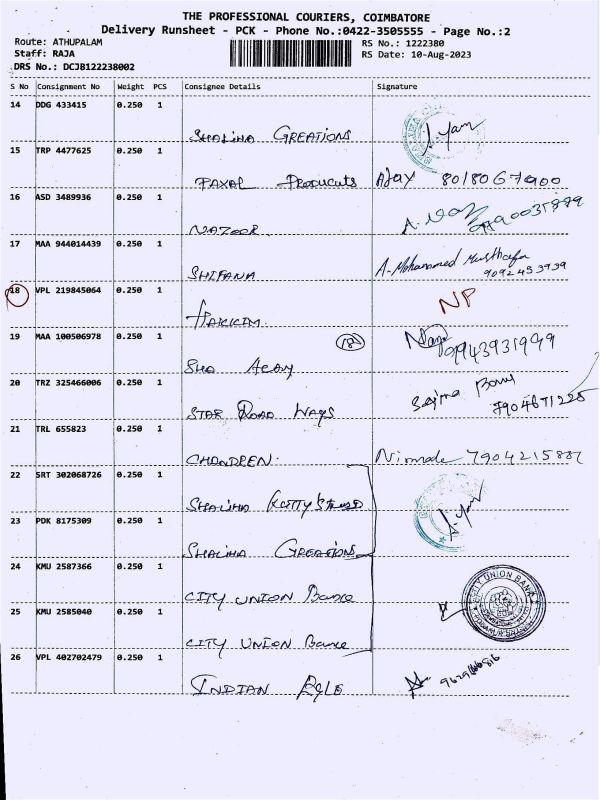 THE PROFESSIONAL COURIERS, COIMBATORE
Delivery Runsheet - PCK - Phone No.:0422-3505555 - Page No.:2
Route: ATHUPALAM RS No.: 1222380
Staff: RAJA RS Date: 10-Aug-2023
DRS No.: DCJB122238002
S No Consignment No Weight PCS Consignee Details Signature
14 DDG 433415 0.250 1
SHALIHA CREATIONS
15 TRP 4477625 0.250 1
Ajay
16 ASD 3489936 0.250 1
NAZOOR
17 MAA 944014439 0.250 1
SHIFANA A. Mohammed Musthafa
9092453939
18 VPL 219845064 0.250 1 NP
HAKKIM
19 MAA 100506978 0.250 1 18
9943931999
20 TRZ 325466006 0.250 1
STAR ROAD WAYS 7904671225
21 TRL 655823 0.250 1
7904215887
22 SRT 302068726 0.250 1
SHALIHA
23 PDK 8175309 0.250 1
SHALIHA CREATIONS
24 KMU 2587366 0.250 1 CITY UNION BANK
CITY UNION Bance
25 KMU 2585040 0.250 1
CITY UNION Bance
26 VPL 402702479 0.250 1
INDIAN